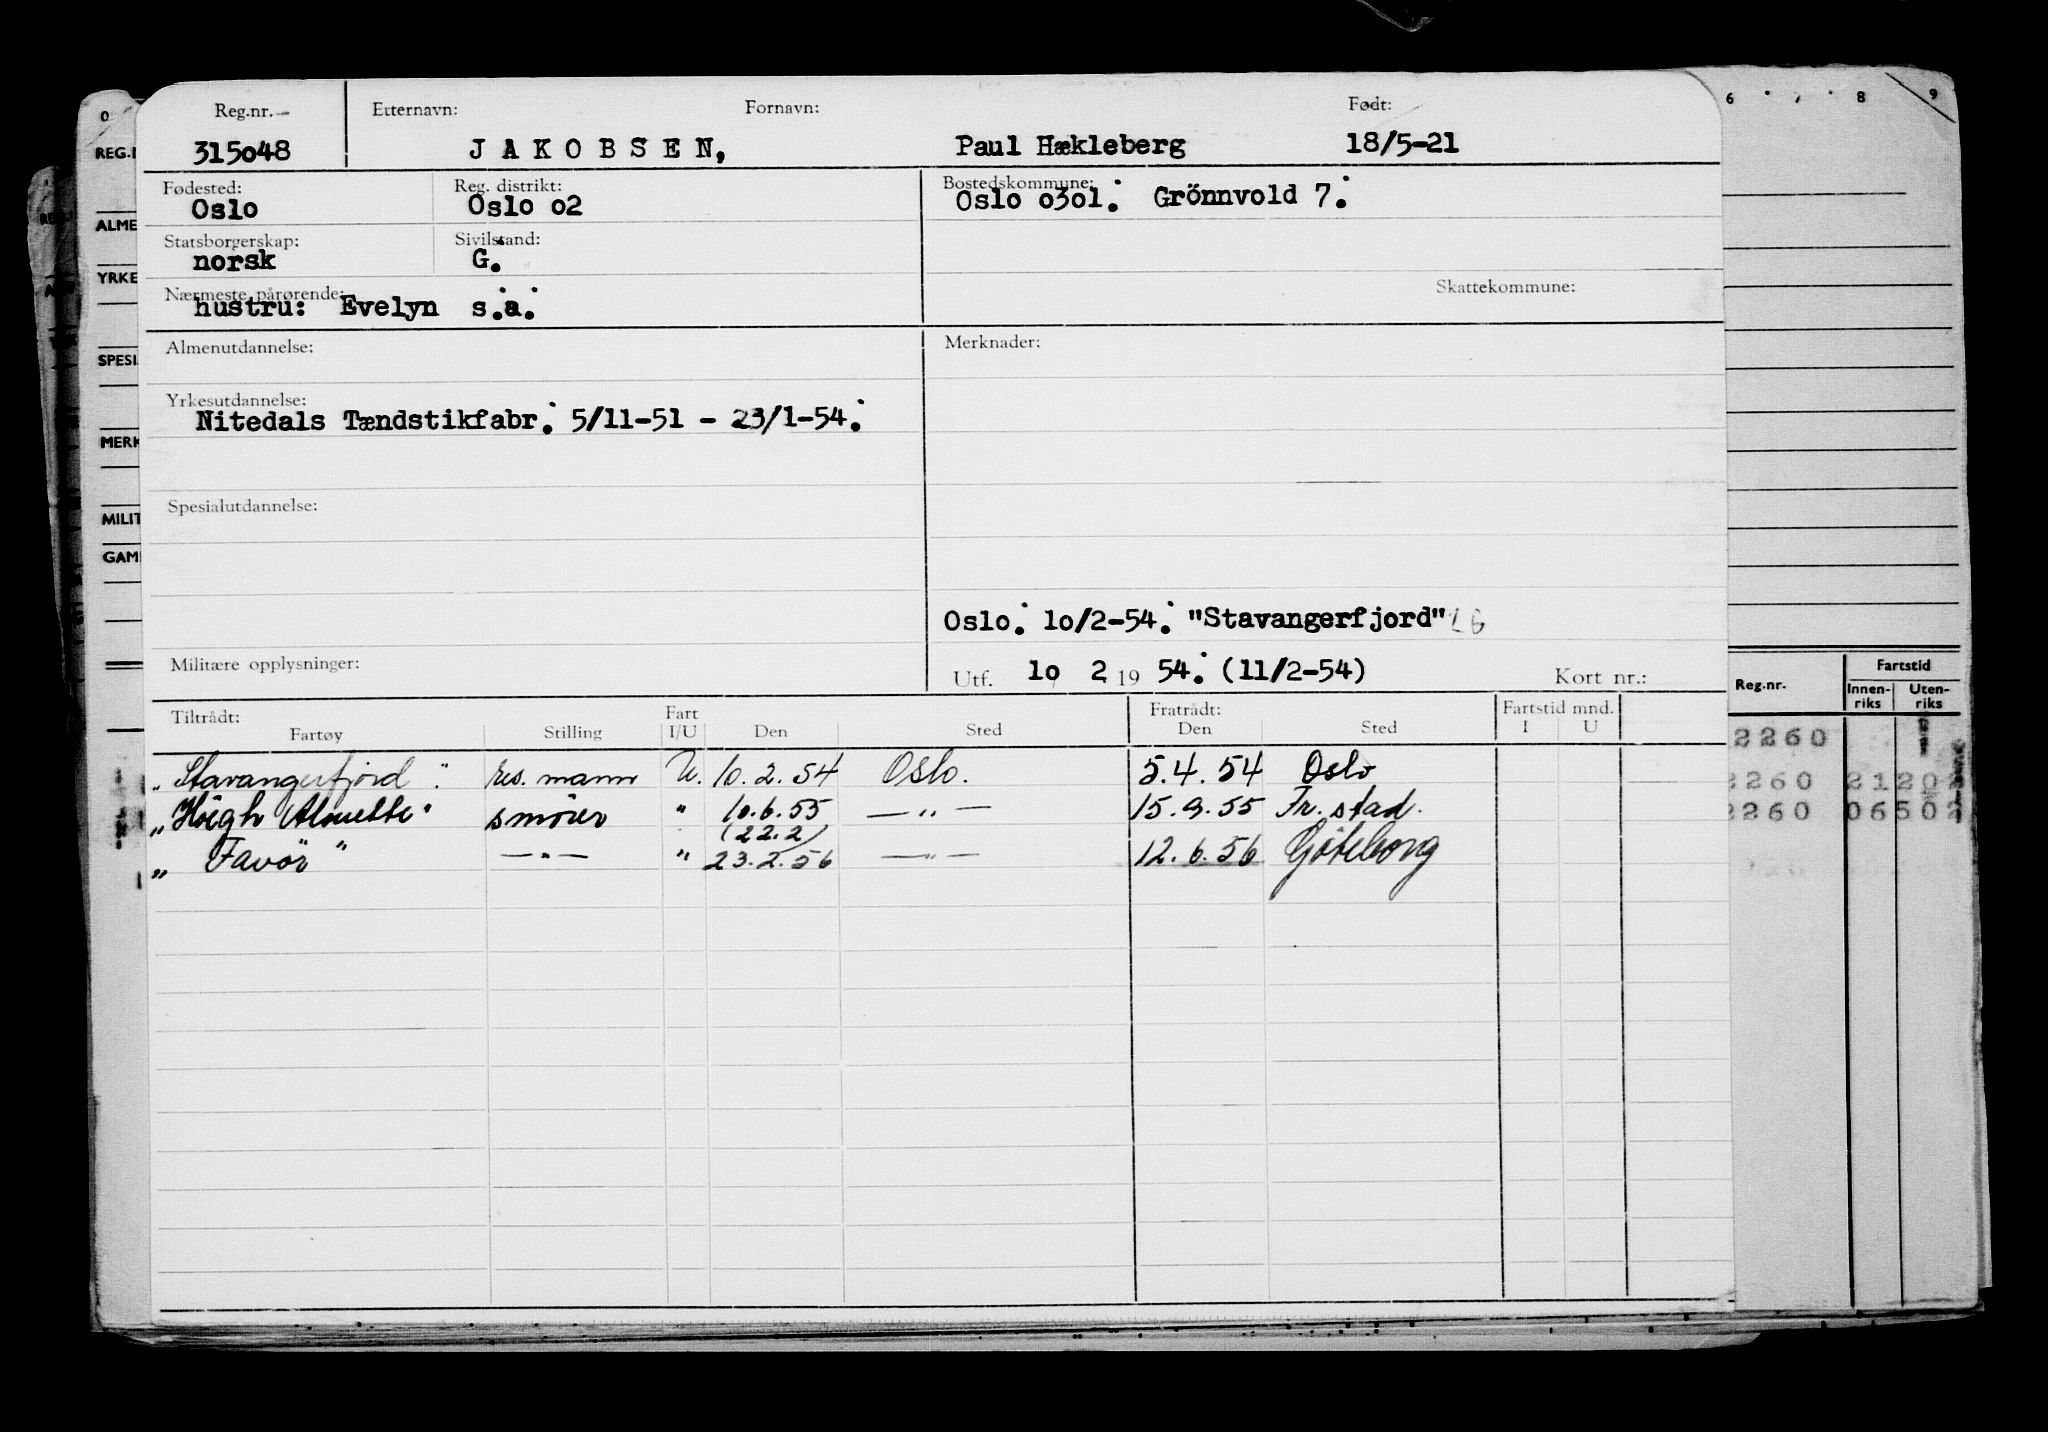 Reg.nr. Etternavn: Fornavn: Født:
315o48 J A K O B S E N, Paul Hækleberg 18/5-21
Fødested: Reg. distrikt: Bostedskommune:
Oslo Oslo o2 Oslo o3ol. Grönnvold 7.
Statsborgerskap: Sivilstand:
norsk G.
Nærmeste pårørende: Skattekommune:
hustru: Evelyn s.a.
Almenutdannelse: Merknader:
Yrkesutdannelse:
Nitedals Tændstikfabr. 5/11-51 - 23/1-54.
Spesialutdannelse:
Oslo. lo/2-54. "Stavangerfjord"
Militære opplysninger: Utf. lo 2 19 54. (11/2-54) Kort nr.:
Tiltrådt: Fart Fratrådt: Fartstid mnd.
Fartøy Stilling I/U Den Sted Den Sted I U
"Stavangerfjord". res. mann U. 10.2.54 Oslo. 5.4.54 Oslo
"Höigh Alouette" smörer " 10.6.55 —"— 15.9.55 Fr.stad.
(22.2)
"Favör" —"— " 23.2.56 —"— 12.6.56 Göteborg
0 6 7 8 9
REG.
ALME
YRKE
SPESI
MERK
MILIT
GAM
Fartstid
Reg.nr. Innen-riks Uten-riks
2260
2260 2120
2260 0650